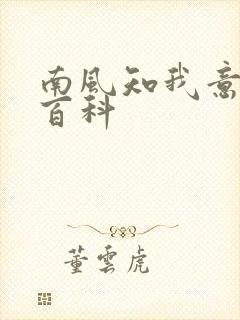 南風知我意
百科
董雲虎